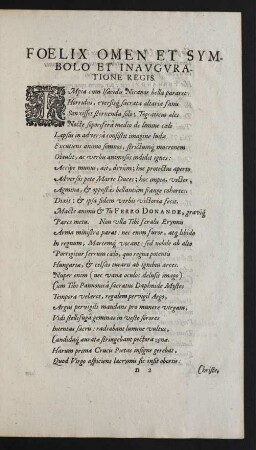 FOELIX OMEN ET SYM-
BOLO ET INAVGVRA-
TIONE REGIS.
IMpia cum Isacidis Nicanor bella pararet:
Horridus, everisq; sacrata altaria fanis
Saevisset sternenda solo; Ingentium ales
Nocte soporifera medio de limine cœli
Lapsa in adversa consistit imagine Iudæ
Excutiens animo somnos, strictumq; mucronem
Obtulit; ac verbis animosis indidit ignes:
Accipe munus, ait, divûm; hoc protectus aperto
Adversis pete Marte Duces; hoc impiger, vlter,
Agmina, & oppositas bellantum frange cohortes:
Dixit; & ipsa fidem verbis victoria fecit.
Macte animis & Tu FERRO DONANDE, graviq;
Parce metu. Non vlla Tibi feralis Erynnis
Arma ministra parat: nec enim furiæ, atq; libido
In regnum, Martemq; vocant: sed nobile ab alto
Porrigitur ferrum cœlo, quo regna potenti
Hungaræ, & celsas tuearis ab ignibus arces.
Nuper enim (nec vana oculos delusit imago)
Cùm Tibi Pannonica sacratus Daphnide Mystes
Tempora velaret, regalem pervigil Argo,
Argus perpigili mandans pro munere virgam;
Vidi stelligeras geminas in veste sorores
bacutas sacra: radiabant lumine vultus,
Candidaq; aurata stringebant pectora zona.
Harum prima Crucis Pietas insigne gerebat,
Quod Virgo aspiciens lacrymis sic infit obortis.
n 2 Christe,